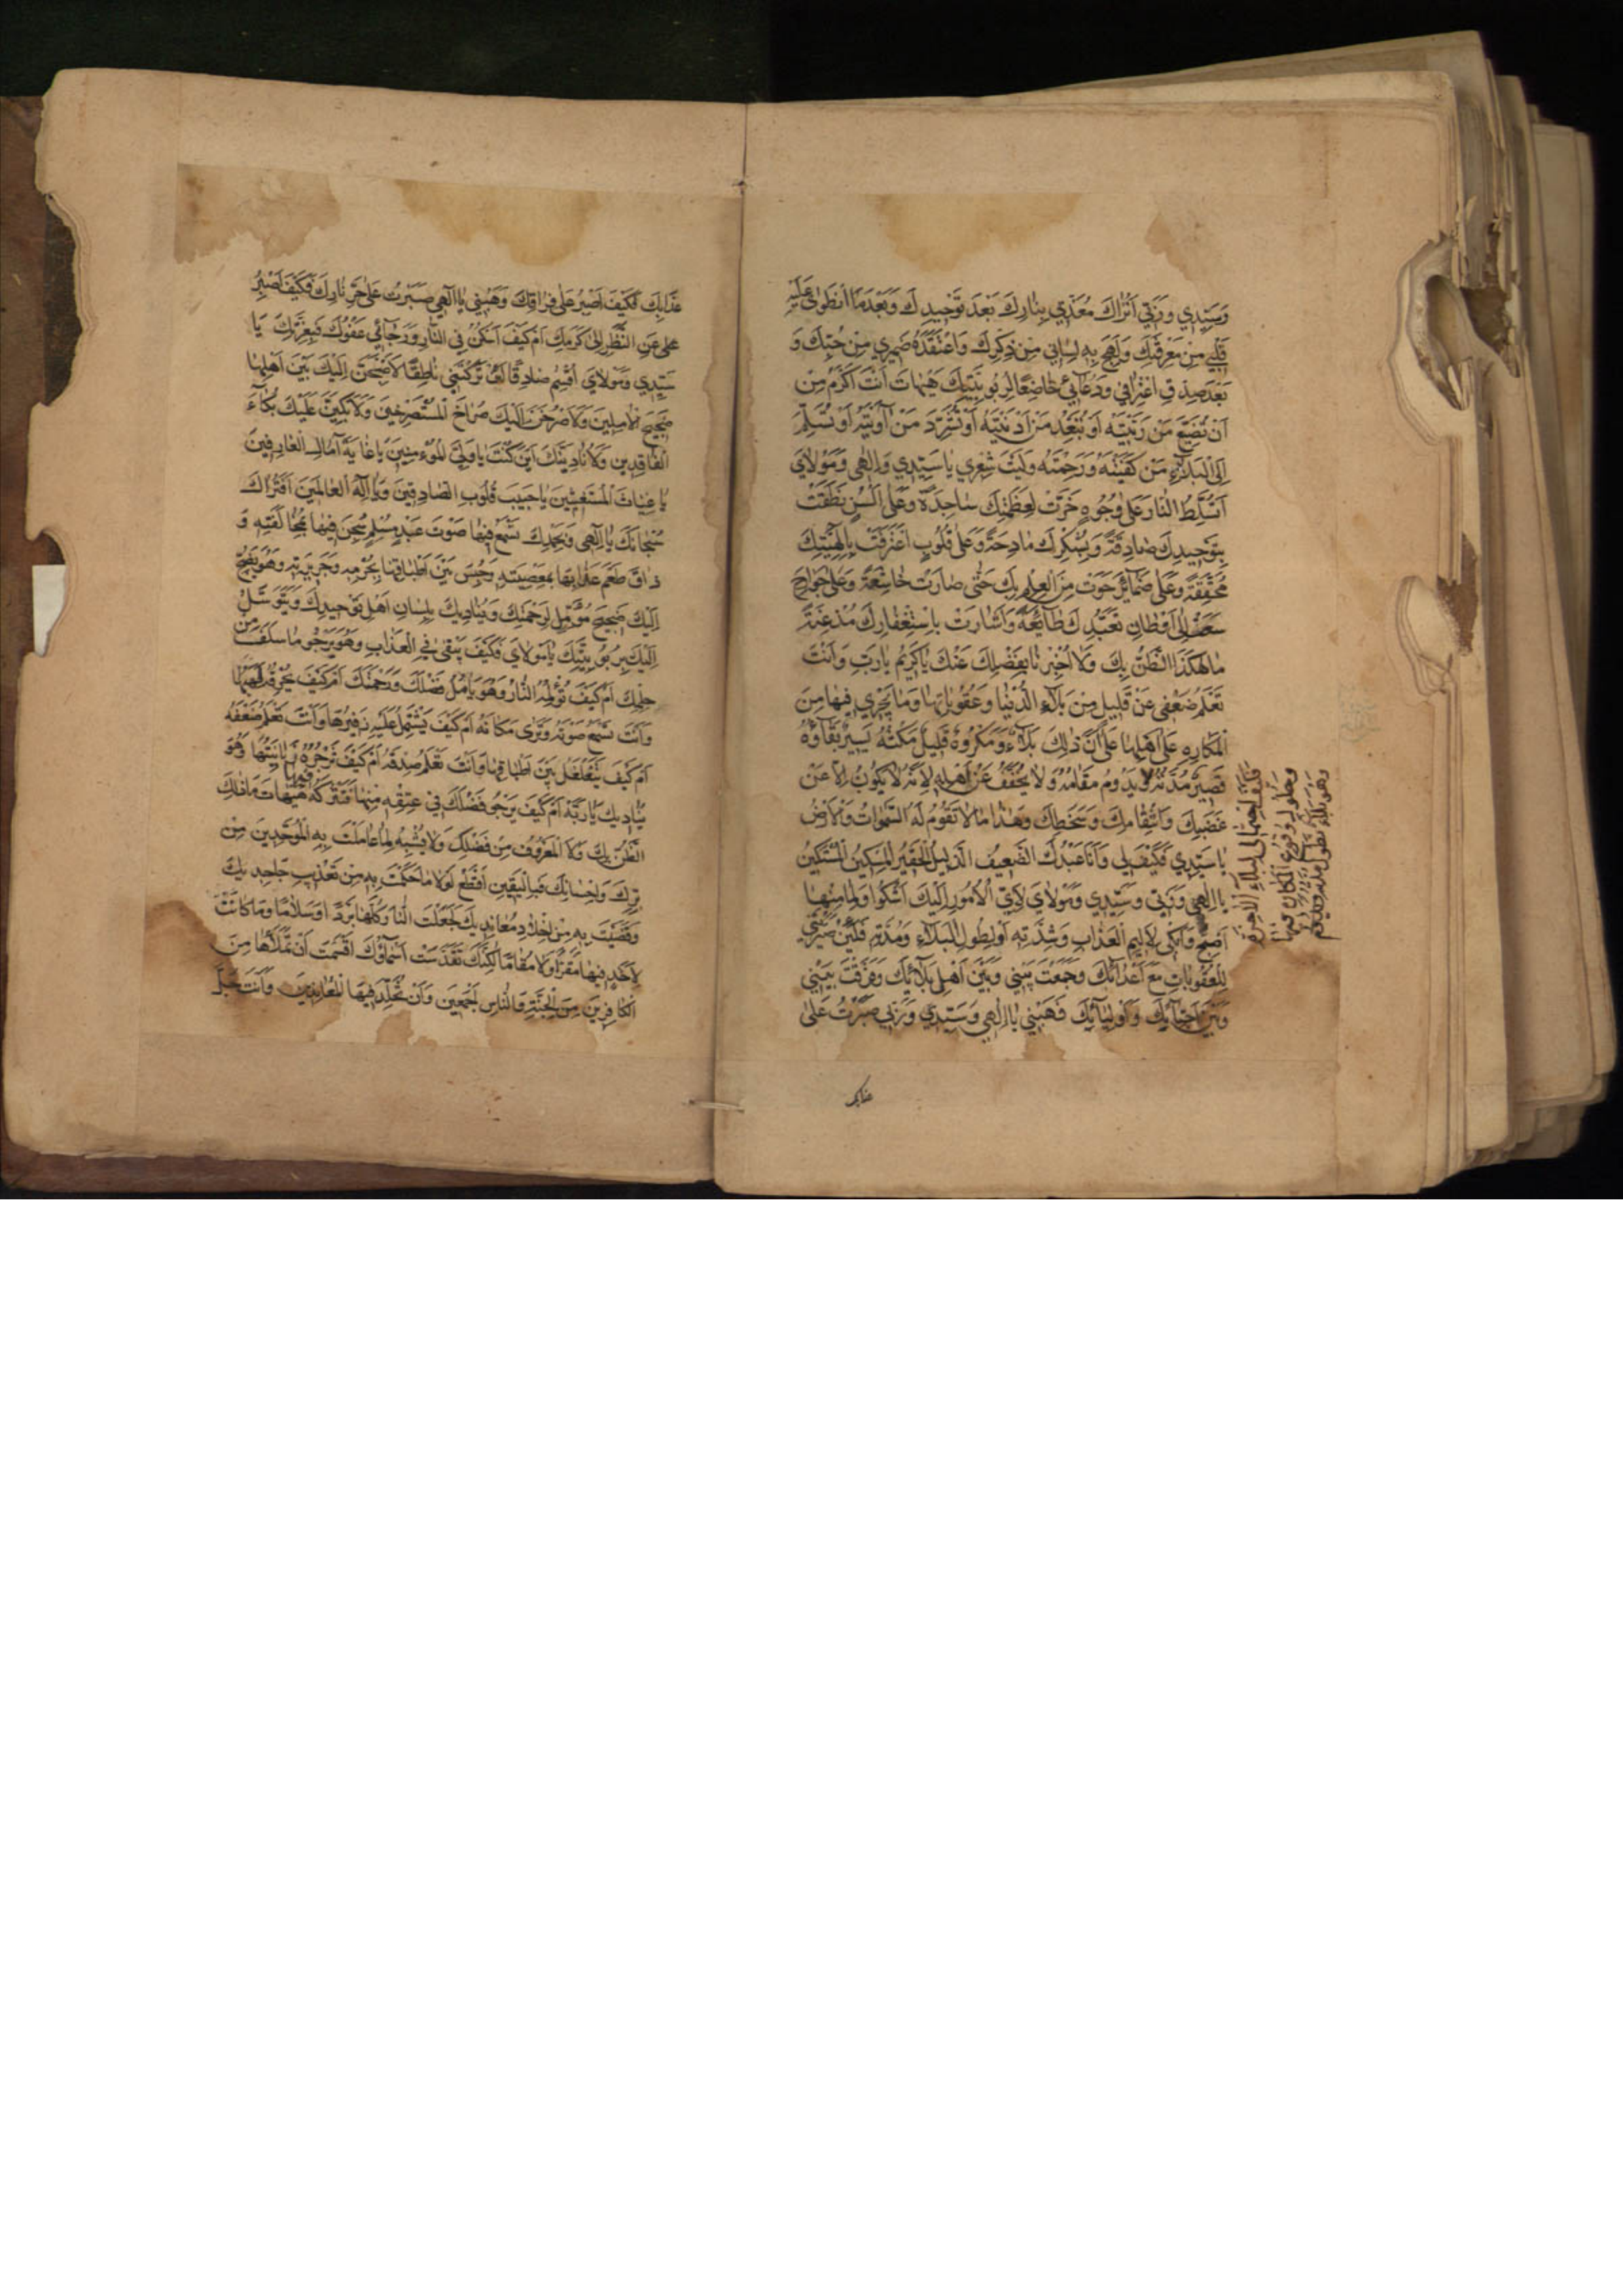 وَسَيِّدِي وَرَبِّي أَتُرَاكَ مُعَذِّبِي بِنَارِكَ بَعْدَ تَوْحِيدِكَ وَبَعْدَمَا انْطَوَىٰ عَلَيْهِ
قَلْبِي مِنْ مَعْرِفَتِكَ وَلَهِجَ بِهِ لِسَانِي مِنْ ذِكْرِكَ وَاعْتَقَدَهُ ضَمِيرِي مِنْ حُبِّكَ وَ
بَعْدَ صِدْقِ اعْتِرَافِي وَدُعَائِي خَاضِعًا لِرُبُوبِيَّتِكَ هَيْهَاتَ أَنْتَ أَكْرَمُ مِنْ
أَنْ تُضَيِّعَ مَنْ رَبَّيْتَهُ أَوْ تُبَعِّدَ مَنْ أَدْنَيْتَهُ أَوْ تُشَرِّدَ مَنْ آوَيْتَهُ أَوْ تُسَلِّمَ
إِلَى الْبَلَاءِ مَنْ كَفَيْتَهُ وَرَحِمْتَهُ وَلَيْتَ شِعْرِي يَا سَيِّدِي وَإِلٰهِي وَمَوْلَايَ
أَتُسَلِّطُ النَّارَ عَلَىٰ وُجُوهٍ خَرَّتْ لِعَظَمَتِكَ سَاجِدَةً وَعَلَىٰ أَلْسُنٍ نَطَقَتْ
بِتَوْحِيدِكَ صَادِقَةً وَبِشُكْرِكَ مَادِحَةً وَعَلَىٰ قُلُوبٍ اعْتَرَفَتْ بِإِلٰهِيَّتِكَ
مُحَقِّقَةً وَعَلَىٰ ضَمَائِرَ حَوَتْ مِنَ الْعِلْمِ بِكَ حَتَّىٰ صَارَتْ خَاشِعَةً وَعَلَىٰ جَوَارِحَ
سَعَتْ إِلَىٰ أَوْطَانِ تَعَبُّدِكَ طَائِعَةً وَأَشَارَتْ بِاسْتِغْفَارِكَ مُذْعِنَةً
مَا هٰكَذَا الظَّنُّ بِكَ وَلَا أُخْبِرْنَا بِفَضْلِكَ عَنْكَ يَا كَرِيمُ يَا رَبِّ وَأَنْتَ
تَعْلَمُ ضَعْفِي عَنْ قَلِيلٍ مِنْ بَلَاءِ الدُّنْيَا وَعُقُوبَاتِهَا وَمَا يَجْرِي فِيهَا مِنَ
الْمَكَارِهِ عَلَىٰ أَهْلِهَا عَلَىٰ أَنَّ ذٰلِكَ بَلَاءٌ وَمَكْرُوهٌ قَلِيلٌ مَكْثُهُ يَسِيرٌ بَقَاؤُهُ
قَصِيرٌ مُدَّتُهُ وَيَدُومُ مَقَامُهُ وَلَا يُخَفَّفُ عَنْ أَهْلِهِ لِأَنَّهُ لَا يَكُونُ إِلَّا عَنْ
غَضَبِكَ وَانْتِقَامِكَ وَسَخَطِكَ وَهٰذَا مَا لَا تَقُومُ لَهُ السَّمٰوَاتُ وَالْأَرْضُ
يَا سَيِّدِي فَكَيْفَ لِي وَأَنَا عَبْدُكَ الضَّعِيفُ الذَّلِيلُ الْحَقِيرُ الْمِسْكِينُ الْمُسْتَكِينُ
يَا إِلٰهِي وَرَبِّي وَسَيِّدِي وَمَوْلَايَ لِأَيِّ الْأُمُورِ إِلَيْكَ أَشْكُو وَلِمَا مِنْهَا
أَضِجُّ وَأَبْكِي لِأَلِيمِ الْعَذَابِ وَشِدَّتِهِ أَوْ لِطُولِ الْبَلَاءِ وَمُدَّتِهِ فَلَئِنْ صَيَّرْتَنِي
لِلْعُقُوبَاتِ مَعَ أَعْدَائِكَ وَجَمَعْتَ بَيْنِي وَبَيْنَ أَهْلِ بَلَائِكَ وَفَرَّقْتَ بَيْنِي
وَبَيْنَ أَحِبَّائِكَ وَأَوْلِيَائِكَ فَهَبْنِي يَا إِلٰهِي وَسَيِّدِي وَرَبِّي صَبَرْتُ عَلَىٰ
فكيف احتمالي لبلاء الآخرة
وحلول وقوع المكاره فيها
وهو بلاء تطول مدته ويدوم
عذابك
عَذَابِكَ فَكَيْفَ أَصْبِرُ عَلَىٰ فِرَاقِكَ وَهَبْنِي يَا إِلٰهِي صَبَرْتُ عَلَىٰ حَرِّ نَارِكَ فَكَيْفَ أَصْبِرُ
عَلَىٰ عَنِ النَّظَرِ إِلَىٰ كَرَمِكَ أَمْ كَيْفَ أَسْكُنُ فِي النَّارِ وَرَجَائِي عَفْوُكَ فَبِعِزَّتِكَ يَا
سَيِّدِي وَمَوْلَايَ أُقْسِمُ صَادِقًا لَئِنْ تَرَكْتَنِي نَاطِقًا لَأَضِجَّنَّ إِلَيْكَ بَيْنَ أَهْلِهَا
ضَجِيجَ الْآمِلِينَ وَلَأَصْرُخَنَّ إِلَيْكَ صُرَاخَ الْمُسْتَصْرِخِينَ وَلَأَبْكِيَنَّ عَلَيْكَ بُكَاءَ
الْفَاقِدِينَ وَلَأُنَادِيَنَّكَ أَيْنَ كُنْتَ يَا وَلِيَّ الْمُؤْمِنِينَ يَا غَايَةَ آمَالِ الْعَارِفِينَ
يَا غِيَاثَ الْمُسْتَغِيثِينَ يَا حَبِيبَ قُلُوبِ الصَّادِقِينَ وَيَا إِلٰهَ الْعَالَمِينَ أَفَتُرَاكَ
سُبْحَانَكَ يَا إِلٰهِي وَبِحَمْدِكَ تَسْمَعُ فِيهَا صَوْتَ عَبْدٍ مُسْلِمٍ سُجِنَ فِيهَا بِمُخَالَفَتِهِ وَ
ذَاقَ طَعْمَ عَذَابِهَا بِمَعْصِيَتِهِ وَحُبِسَ بَيْنَ أَطْبَاقِهَا بِجُرْمِهِ وَجَرِيرَتِهِ وَهُوَ يَضِجُّ
إِلَيْكَ ضَجِيجَ مُؤَمِّلٍ لِرَحْمَتِكَ وَيُنَادِيكَ بِلِسَانِ أَهْلِ تَوْحِيدِكَ وَيَتَوَسَّلُ
إِلَيْكَ بِرُبُوبِيَّتِكَ يَا مَوْلَايَ فَكَيْفَ يَبْقَىٰ فِي الْعَذَابِ وَهُوَ يَرْجُو مَا سَلَفَ مِنْ
حِلْمِكَ أَمْ كَيْفَ تُؤْلِمُهُ النَّارُ وَهُوَ يَأْمُلُ فَضْلَكَ وَرَحْمَتَكَ أَمْ كَيْفَ يُحْرِقُهُ لَهَبُهَا
وَأَنْتَ تَسْمَعُ صَوْتَهُ وَتَرَىٰ مَكَانَهُ أَمْ كَيْفَ يَشْتَمِلُ عَلَيْهِ زَفِيرُهَا وَأَنْتَ تَعْلَمُ ضَعْفَهُ
أَمْ كَيْفَ يَتَقَلْقَلُ بَيْنَ أَطْبَاقِهَا وَأَنْتَ تَعْلَمُ صِدْقَهُ أَمْ كَيْفَ تَزْجُرُهُ زَبَانِيَتُهَا وَهُوَ
يُنَادِيكَ يَا رَبَّهُ أَمْ كَيْفَ يَرْجُو فَضْلَكَ فِي عِتْقِهِ مِنْهَا فَتَتْرُكُهُ فِيهَا هَيْهَاتَ مَا ذٰلِكَ
الظَّنُّ بِكَ وَلَا الْمَعْرُوفُ مِنْ فَضْلِكَ وَلَا مُشْبِهٌ لِمَا عَامَلْتَ بِهِ الْمُوَحِّدِينَ مِنْ
بِرِّكَ وَإِحْسَانِكَ فَبِالْيَقِينِ أَقْطَعُ لَوْلَا مَا حَكَمْتَ بِهِ مِنْ تَعْذِيبِ جَاحِدِيكَ
وَقَضَيْتَ بِهِ مِنْ إِخْلَادِ مُعَانِدِيكَ لَجَعَلْتَ النَّارَ كُلَّهَا بَرْدًا وَسَلَامًا وَمَا كَانَتْ
لِأَحَدٍ فِيهَا مَقَرًّا وَلَا مُقَامًا لٰكِنَّكَ تَقَدَّسَتْ أَسْمَاؤُكَ أَقْسَمْتَ أَنْ تَمْلَأَهَا مِنَ
الْكَافِرِينَ مِنَ الْجِنَّةِ وَالنَّاسِ أَجْمَعِينَ وَأَنْ تُخَلِّدَ فِيهَا الْمُعَانِدِينَ وَأَنْتَ جَلَّ